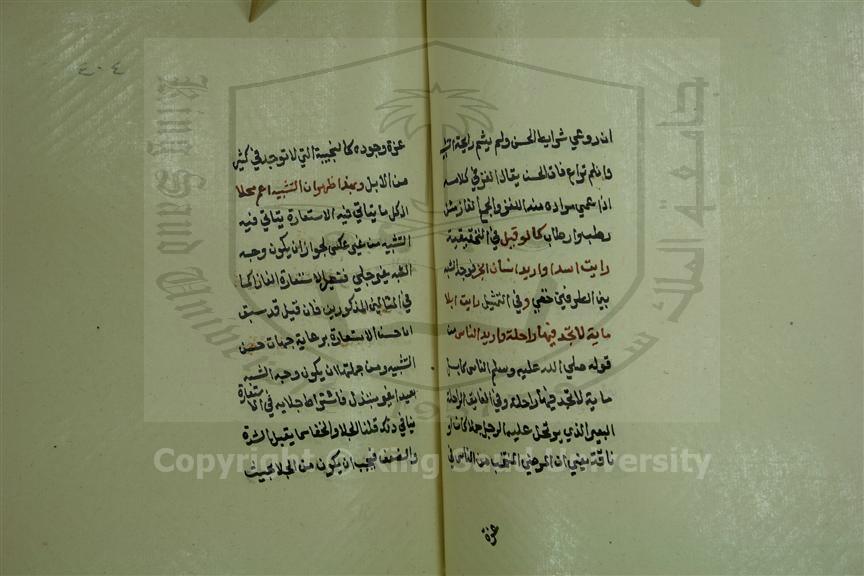 ان روعي شرايط الحسن ولم يشم رايحة
وان لم تراع فات الحسن يقال الغز في كلامه
اذا عمي مراده منه اللغز والجمع الغاز مثل
رطب وارطاب كما لو قيل في التحقيقية
رايت اسدا واريد انسان ابخر فوجه الشبه
بين الطرفين خفي وفي التمثيل رايت ابلا
ماية لا تجد فيها راحلة واريد الناس من
قوله صلي الله عليه وسلم الناس كابل
ماية لا تجد فيها راحلة وفي الفايق الراحلة
البعير الذي يرتحل عليه الرجل جملا كان او
ناقة يعني ان المرضي المنتخب من الناس في
عزة
٤٠٣
عزة وجوده كالنجيبة التي لا توجد في كثير
من الابل وبهذا ظهر ان التشبيه اعم محلا
اذ كل ما يتاتي فيه الاستعارة يتاتي فيه
التشبيه من غير عكس لجواز ان يكون وجه
الشبه غير جلي فتصير الاستعارة الغازا كما
في المثالين المذكورين فان قيل قد سبق
ان حسن الاستعارة برعاية جهات حسن
التشبيه ومن جملتها ان يكون وجه الشبه
بعيدا غير مبتذل فاشتراط جلايه في الاستعارة
ينافي ذلك قلنا الجلا والخفا مما يقبل الشدة
والضعف فيجب ان يكون من الجلا بحيث
جامعة الملك سعود
King Saud University
Copyright © King Saud University